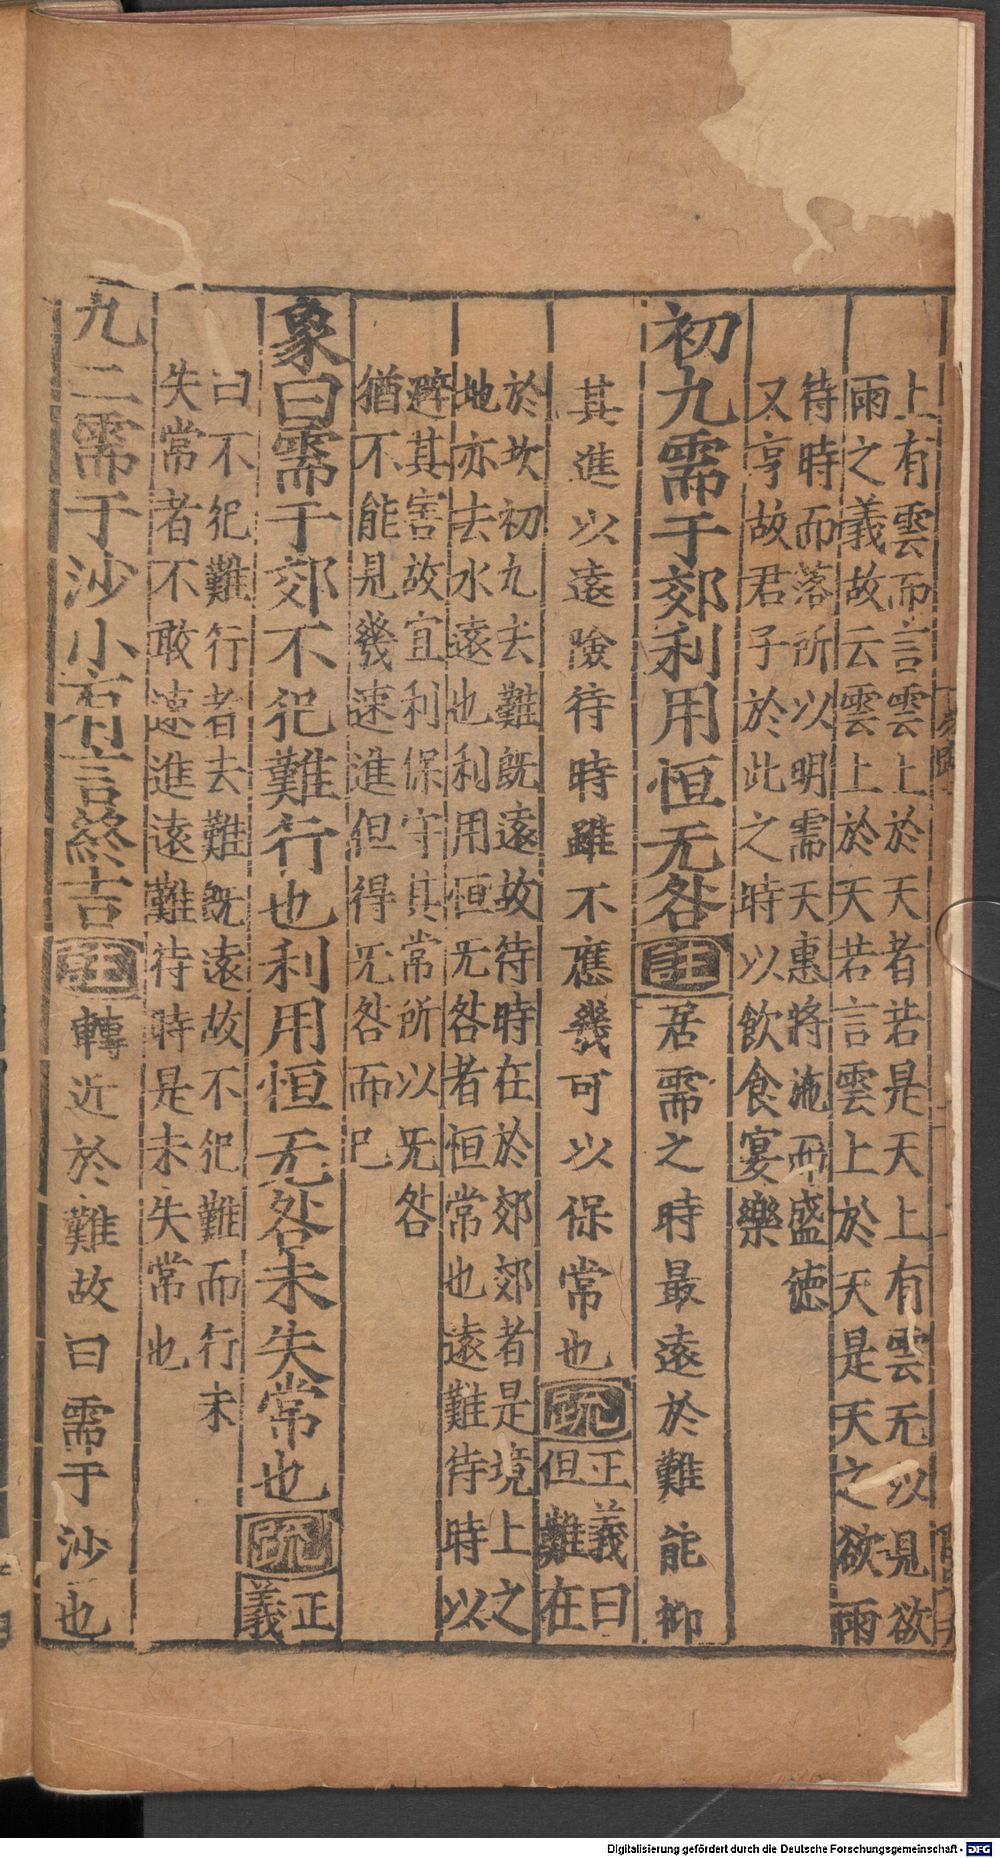 上有雲而言雲上於天者若是天上有雲无以見欲
雨之義故云雲上於天若言雲上於天是天之欲雨
待時而落所以明需天惠將施而盛徳
又亨故君子於此之時以飲食宴樂
初九需于郊利用恒无咎註居需之時最遠於難能抑
其進以遠險待時雖不應幾可以保常也疏正義曰
但難在
於坎初九去難既遠故待時在於郊郊者是境上之
地亦去水遠也利用恒无咎者恒常也遠難待時以
避其害故宜利保守其常所以无咎
猶不能見幾速進但得无咎而已
象曰需于郊不犯難行也利用恒无咎未失常也疏正
義
曰不犯難行者去難既遠故不犯難而行未
失常者不敢速進遠難待時是未失常也
九二需于沙小有言終吉註轉近於難故曰需于沙也
Digitalisierung gefördert durch die Deutsche Forschungsgemeinschaft - DFG